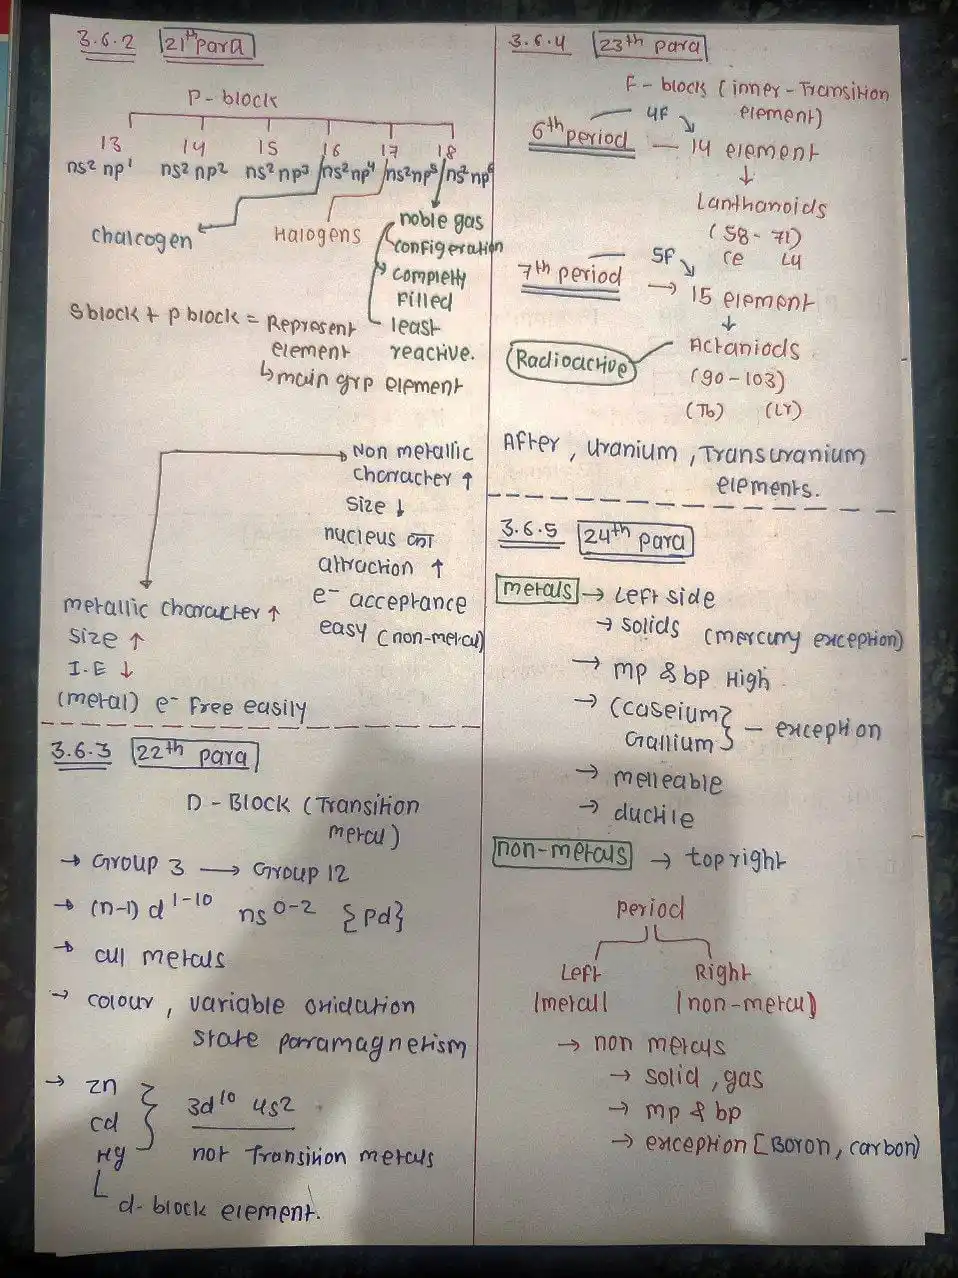 3.6.2 21th para
P-block
13 14 15 16 17 18
ns² np¹ ns² np² ns² np³ ns² np⁴ ns² np⁵ ns² np⁶
chalcogen
Halogens
noble gas
configeration
completly
filled
least
reactive.
S block + p block = Represent
element
↳ main grp element
Non metallic
character ↑
size ↓
nucleus का
attraction ↑
e⁻ acceptance
easy (non-metal)
metallic character ↑
size ↑
I.E ↓
(metal) e⁻ free easily
3.6.3 22th para
D-Block (Transition
metal)
→ Group 3 → Group 12
→ (n-1) d¹⁻¹⁰ ns⁰⁻² {Pd}
→ all metals
→ colour, variable oxidation
state paramagnetism
→ Zn
cd
Hg
3d¹⁰ 4s2
not Transition metals
d-block element.
3.6.4 23th para
F-block (inner-Transition
element)
6th period 4F → 14 element
↓
Lanthanoids
(58-71)
Ce Lu
7th period 5F → 15 element
↓
Radioactive Actaniods
(90-103)
(Tb) (Lr)
After, uranium, Transuranium
elements.
3.6.5 24th para
metals → Left side
→ solids (mercury exception)
→ mp & bp High
→ (caseium
Gallium} - exception
→ melleable
→ ductile
non-metals → top right
period
Left Right
(metal) (non-metal)
→ non metals
→ solid, gas
→ mp & bp
→ exception [Boron, carbon)